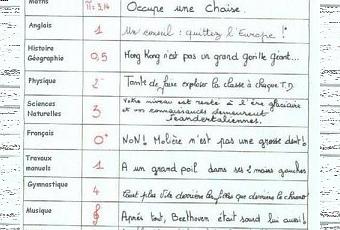 Maths π=3,14 Occupe une chaise.
Anglais 1 Un conseil : quittez l'Europe !
Histoire Géographie 0,5 Hong Kong n'est pas un grand gorille géant...
Physique 2⁻ Tente de faire exploser la classe à chaque T.D.
Sciences Naturelles 3 Votre niveau est resté à l'ère glaciaire
et vos connaissances demeurent
neandertaliennes.
Français 0⁺ NON! Molière n'est pas une grosse dent!
Travaux manuels 1 A un grand poil dans ses 2 mains gauches
Gymnastique 4 Court plus vite derrière les filles que derrière le chrono!
Musique Après tout, Beethoven était sourd lui aussi!